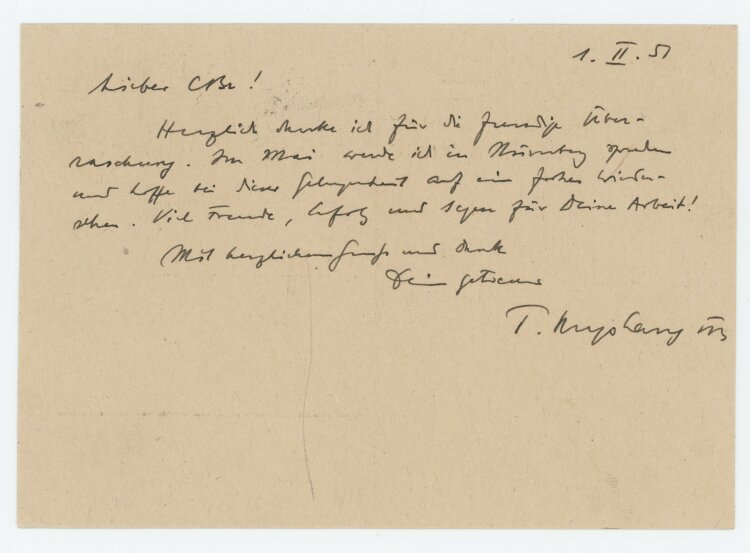 1. II. 51
Lieber CBr!
Herzlich danke ich für die freudige Über-
raschung. Im Mai werde ich in Nürnberg sprechen
und hoffe bei dieser Gelegenheit auf ein frohes Wieder-
sehen. Viel Freude, Erfolg und Segen für Deine Arbeit!
Mit herzlichem Gruß und Dank
Dein getreuer
T.